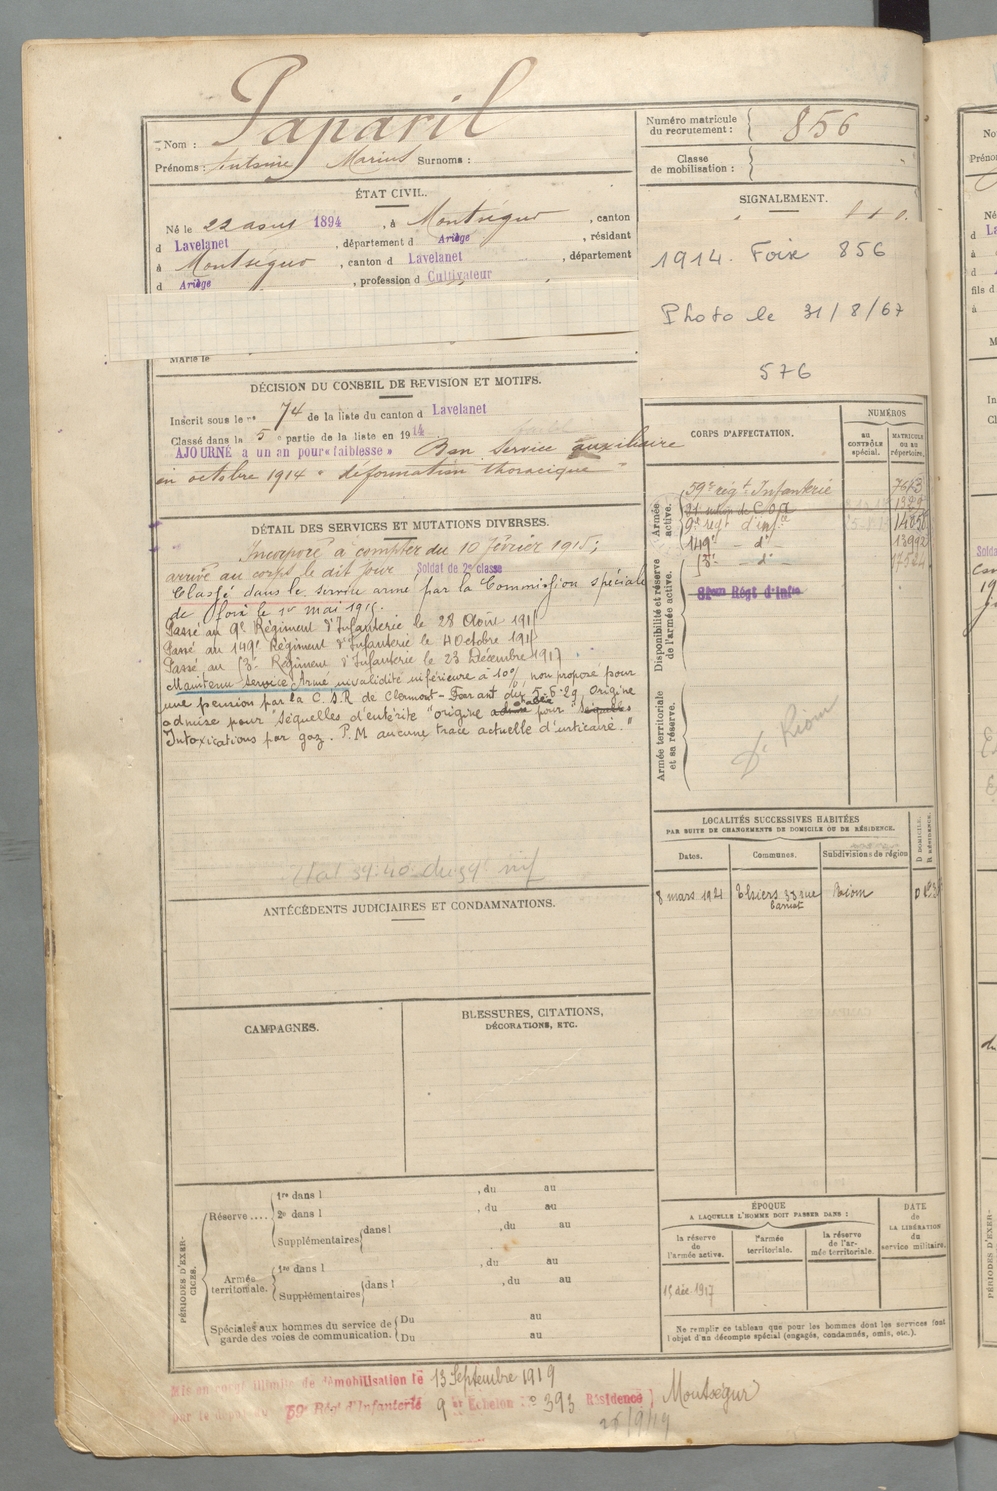 Nom : Paparil
Prénoms : Antoine Marius Surnoms :
Numéro matricule du recrutement : 856
Classe de mobilisation :
ÉTAT CIVIL.
Né le 22 1894, à Montségur, canton
d Lavelanet, département d Ariège, résidant
à Montségur, canton d Lavelanet, département
d Ariège, profession d Cultivateur
Marié le
SIGNALEMENT.
1914. Foix 856
Photo le 31/8/67
576
DÉCISION DU CONSEIL DE REVISION ET MOTIFS.
Inscrit sous le n° 74 de la liste du canton d Lavelanet
Classé dans la 5e partie de la liste en 1914
AJOURNÉ à un an pour « faiblesse » Bon service auxiliaire
en octobre 1914 " déformation thoracique "
DÉTAIL DES SERVICES ET MUTATIONS DIVERSES.
Incorporé à compter du 10 février 1915 ;
arrivé au corps le dit jour Soldat de 2e classe
Classé dans le service armé par la Commission spéciale
de Foix le 1er mai 1915.
Passé au 9e Régiment d'Infanterie le 28 Août 191
Passé au 149e Régiment d'Infanterie le 4 Octobre 191
Passé au 53e Régiment d'Infanterie le 23 Décembre 1917
Maintenu Service Armé invalidité inférieure à 10%, non proposé pour
une pension par la C.S.R de Clermont-Ferrant du 5-6-29. Origine
admise pour "séquelles d'entérite" origine admise pour "séquelles
Intoxications par gaz. P.M aucune trace actuelle d'urticaire."
CORPS D'AFFECTATION.
NUMÉROS
au CONTRÔLE spécial.
MATRICULE ou au répertoire.
Armée active.
59e régt Infanterie 7643
9e régt d'infie
149e — d°
53e — d°
Disponibilité et réserve de l'armée active.
Régt d'Infie
Armée territoriale et sa réserve.
Riom
LOCALITÉS SUCCESSIVES HABITÉES
PAR SUITE DE CHANGEMENTS DE DOMICILE OU DE RÉSIDENCE.
Dates. Communes. Subdivisions de région D DOMICILE. R RÉSIDENCE.
8 mars 1921 Thiers 33 rue Carnot Riom D
ANTÉCÉDENTS JUDICIAIRES ET CONDAMNATIONS.
CAMPAGNES.
BLESSURES, CITATIONS,
DÉCORATIONS, ETC.
PÉRIODES D'EXERCICES.
Réserve.....
1re dans l , du au
2e dans l , du au
Supplémentaires dans l , du au
Armée territoriale.
1re dans l , du au
Supplémentaires dans l , du au
Spéciales aux hommes du service de garde des voies de communication.
Du au
Du au
ÉPOQUE
A LAQUELLE L'HOMME DOIT PASSER DANS :
la réserve de l'armée active.
l'armée territoriale.
la réserve de l'armée territoriale.
DATE de LA LIBÉRATION du service militaire.
15 déc. 1917
Ne remplir ce tableau que pour les hommes dont les services font
l'objet d'un décompte spécial (engagés, condamnés, omis, etc.).
Mis en congé illimité de démobilisation le 13 Septembre 1919
par le dépôt du 59e Régt d'Infanterie 9e Echelon N° 393 Résidence Montségur